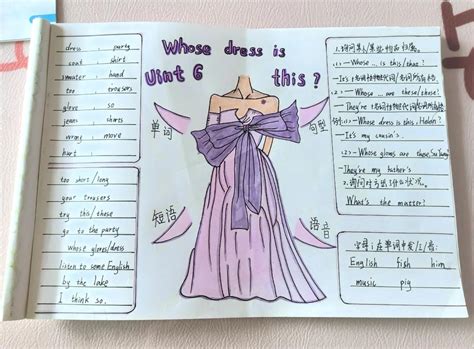 Whose dress is
Uint 6 this ?
dress , party
coat , shirt
sweater , hand
too , trousers
glove , so
jeans , shirts
wrong , move
hurt
too short / long
your trousers
try this/these
go to the party
whose gloves/dress
listen to some English
by the lake
I think so.
单词
句型
短语
语音
1.询问某人/某些物品归属。
(1)-Whose ... is this/that?
-It's
(2)-Whose ... are these/those?
-They're
(1)-Whose dress is this, Helen?
-It's my cousin's.
(2)-Whose gloves are these, Su Yang
-They're my father's
2.询问对方
What's the matter?
字母i在单词中发/ɪ/音:
English fish him
music pig